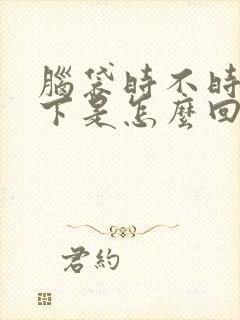 腦袋時不時
下是怎麼回
君約